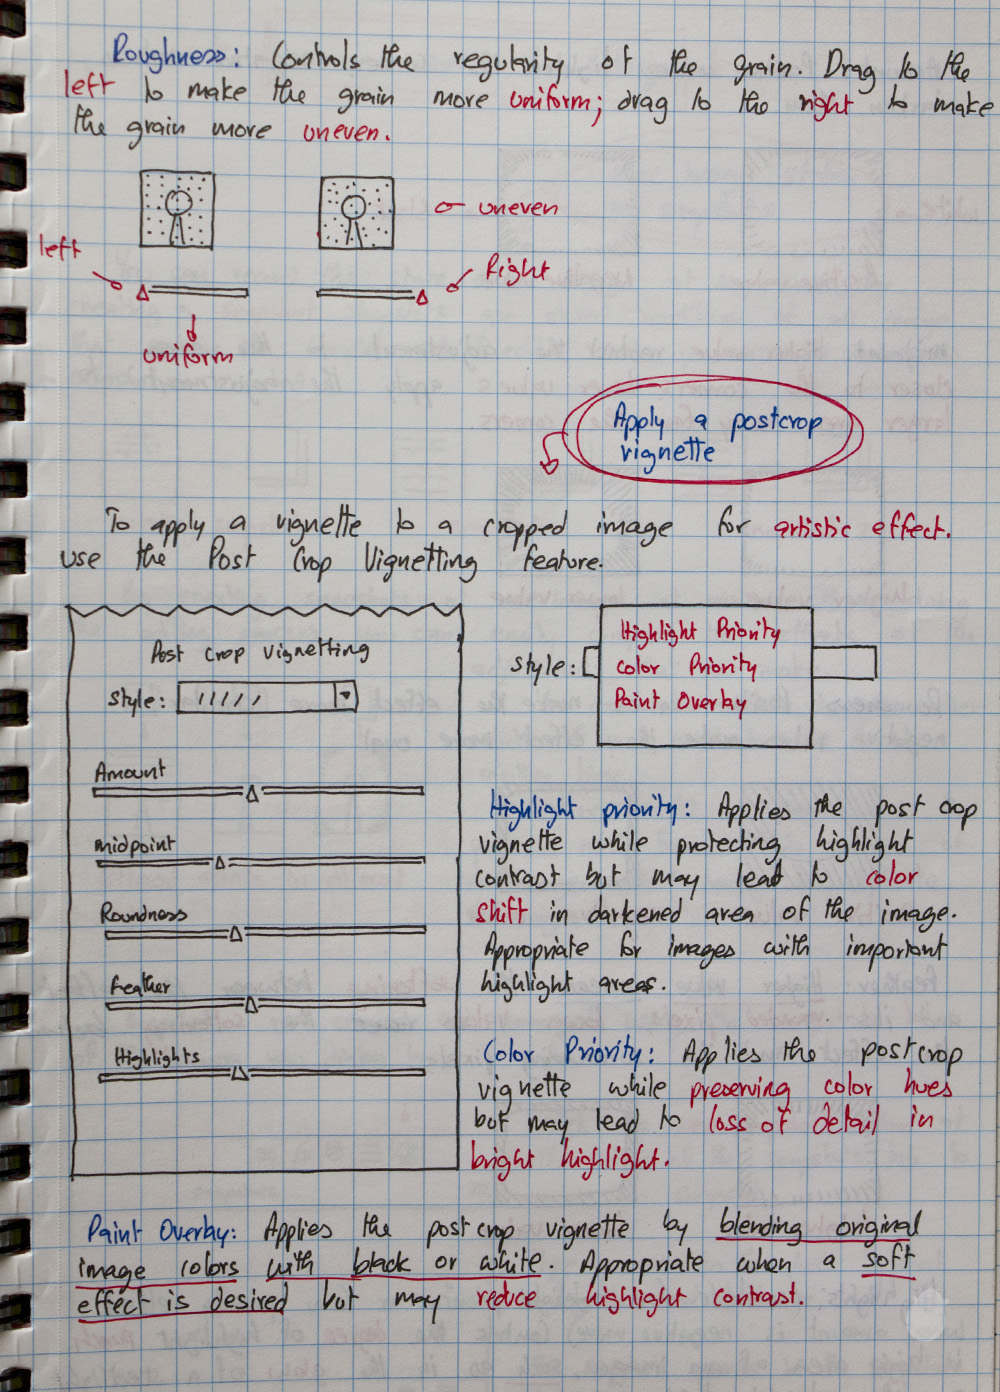 Roughness: Controls the regularity of the grain. Drag to the
left to make the grain more uniform; drag to the right to make
the grain more uneven.
uneven
left
Right
uniform
Apply a postcrop
vignette
To apply a vignette to a cropped image for artistic effect.
use the Post Crop Vignetting feature.
Post crop vignetting
Style:
Amount
midpoint
Roundness
Feather
Highlights
Style:
Highlight Priority
color Priority
Paint Overlay
Highlight priority: Applies the post crop
vignette while protecting highlight
contrast but may lead to color
shift in darkened area of the image.
Appropriate for images with important
highlight areas.
Color Priority: Applies the postcrop
vignette while preserving color hues
but may lead to loss of detail in
bright highlight.
Paint Overlay: Applies the post crop vignette by blending original
image colors with black or white. Appropriate when a soft
effect is desired but may reduce highlight contrast.